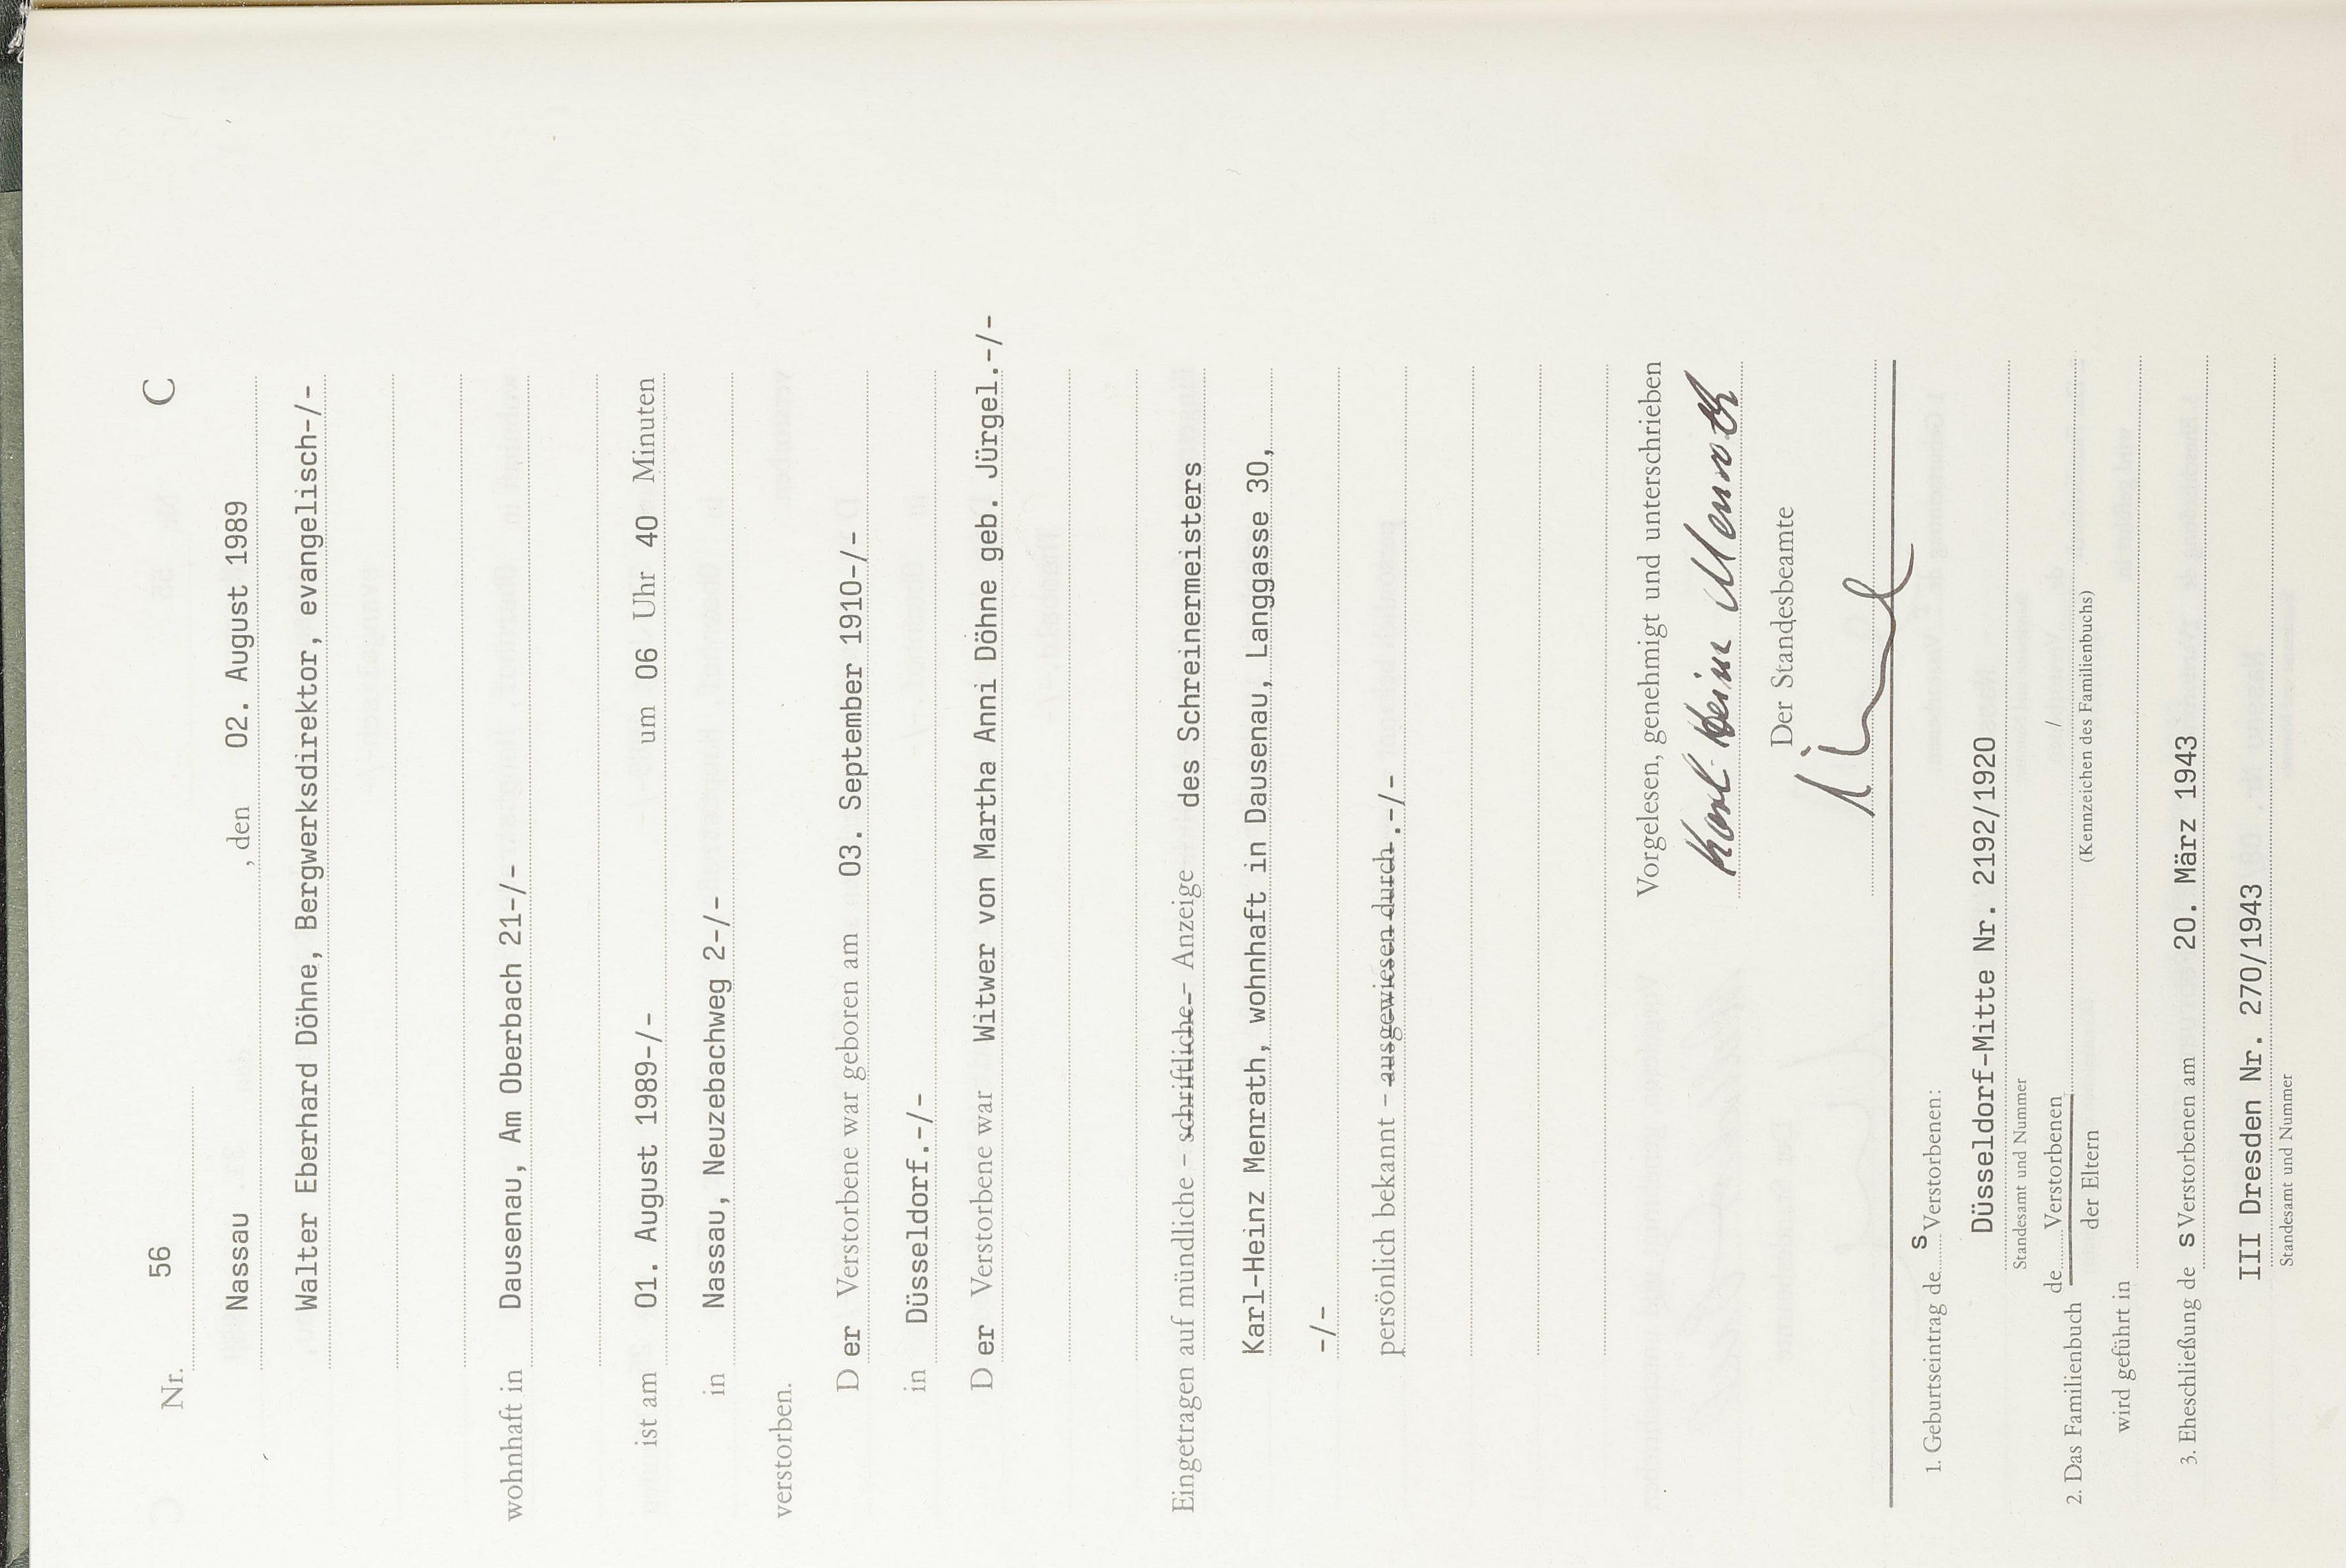 Nr. 56 C
Nassau , den 02. August 1989
Walter Eberhard Döhne, Bergwerksdirektor, evangelisch-/-
wohnhaft in Dausenau, Am Oberbach 21-/-
ist am 01. August 1989-/- um 06 Uhr 40 Minuten
in Nassau, Neuzebachweg 2-/-
verstorben.
D er Verstorbene war geboren am 03. September 1910-/-
in Düsseldorf.-/-
D er Verstorbene war Witwer von Martha Anni Döhne geb. Jürgel.-/-
Eingetragen auf mündliche – schriftliche – Anzeige des Schreinermeisters
Karl-Heinz Menrath, wohnhaft in Dausenau, Langgasse 30,
-/-
persönlich bekannt – ausgewiesen durch.-/-
Vorgelesen, genehmigt und unterschrieben
Karl-Heinz Menrath
Der Standesbeamte
1. Geburtseintrag de s Verstorbenen:
Düsseldorf-Mitte Nr. 2192/1920
Standesamt und Nummer
2. Das Familienbuch de Verstorbenen /
der Eltern (Kennzeichen des Familienbuchs)
wird geführt in
3. Eheschließung de s Verstorbenen am 20. März 1943
III Dresden Nr. 270/1943
Standesamt und Nummer